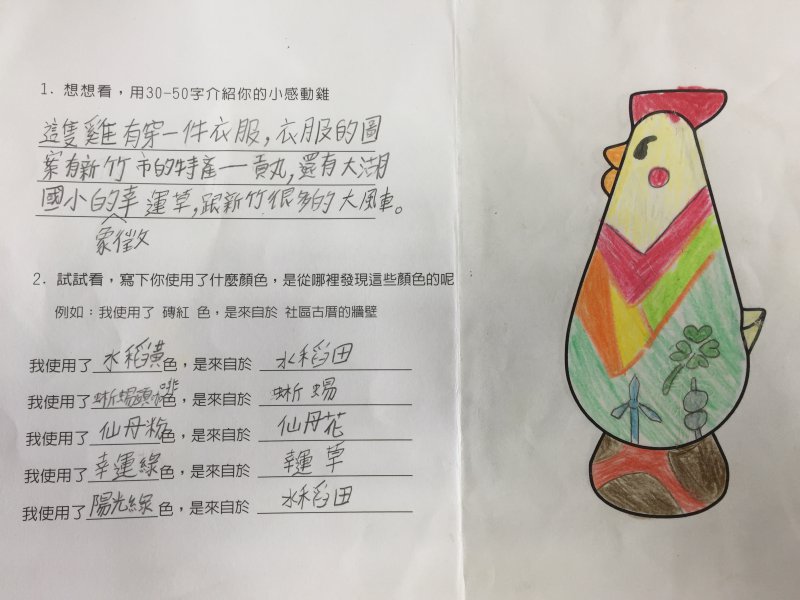 1. 想想看，用30-50字介紹你的小感動雞
這隻雞有穿一件衣服，衣服的圖
案有新竹市的特產一貢丸，還有大湖
國小的幸運草，跟新竹很多的大風車。
象徵
2. 試試看，寫下你使用了什麼顏色，是從哪裡發現這些顏色的呢
例如：我使用了 磚紅 色，是來自於 社區古厝的牆壁
我使用了水稻黃色，是來自於 水稻田
我使用了蜥蜴頭咖啡色，是來自於 蜥蜴
我使用了仙丹粉色，是來自於 仙丹花
我使用了幸運綠色，是來自於 幸運草
我使用了陽光綠色，是來自於 水稻田